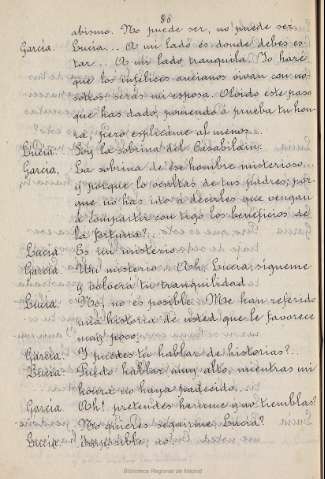 86
abismo. No puede ser, no puede ser.
Garcia. Lucia... A mi lado es donde debes es-
tar... A mi lado tranquila. Yo haré
que los infelices ancianos vivan con no-
sotros: serás mi esposa. Olvido este paso
que has dado, poniendo á prueba tu hon-
ra, pero esplicame al menos...
Lucia. Soy la sobrina del Casabilain.
Garcia. La sobrina de ese hombre misterioso...
y porque lo ocultas de tus padres; por-
que no has ido á decirles que vengan
á compartir con tigo los beneficios de
la fortuna?..
Lucia Es un misterio.
Garcia Un misterio. Ah! Lucia; sigueme
y volverá tu tranquilidad.
Lucia. No, no es posible. Me han referido
una historia de usted que le favorece
muy poco.
Garcia. Y puedes tu hablar de historias?..
Lucia. Puedo hablar muy alto, mientras mi
honra no haya padecido...
Garcia Ah! pretendes herirme y no tiemblas!
No quieres seguirme, Lucia?
Lucia. Imposible, no
Biblioteca Regional de Madrid